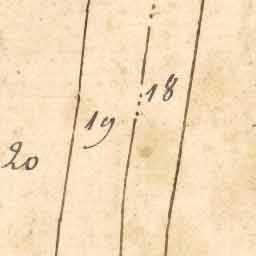 18
19
20